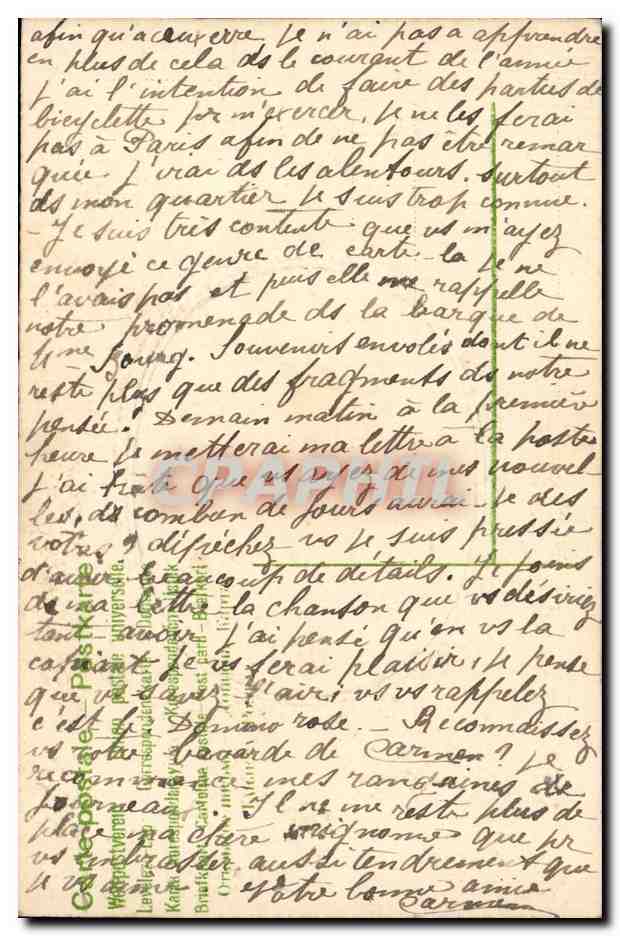 afin qu'a Auxerre je n'ai pas a apprendre
en plus de cela ds le courant de l'année
j'ai l'intention de faire des parties de
bicyclette pr m'exercer, je ne les ferai
pas à Paris afin de ne pas être remar
quée j'irai ds les alentours. surtout
ds mon quartier je suis trop connue.
- Je suis très contente que vs m'ayez
envoyé ce genre de carte-la je ne
l'avais pas et puis elle me rappelle
notre promenade ds la barque de
Mme Bourg. Souvenirs envolés dont il ne
reste plus que des fragments ds notre
pensée. Demain matin à la première
heure je metterai ma lettre à la poste
j'ai hate que vs ayez de mes nouvel
les, ds combien de jours aurai-je des
votres? dépéchez vs je suis pressée
d'avoir beaucoup de détails. Je joins
de ma lettre la chanson que vs désiriez
tant avoir j'ai pensé qu'en vs la
copiant je vs ferai plaisir, je pense
que vs savez l'air; vs vs rappelez
c'est le Domino rose. - Reconnaissez
vs votre bavarde de Carmen? Je
recommence mes rengaines de
Journeau. Il ne me reste plus de
place ma chère mignonne que pr
vs embrasser aussi tendrement que
je vs aime Votre bonne amie
Carmen
Carte postale - Postkarte
Weltpostverein - Union postale universelle.
Briefkaart - Cartolina postale - Post card - Brefkort
CPAPHIL